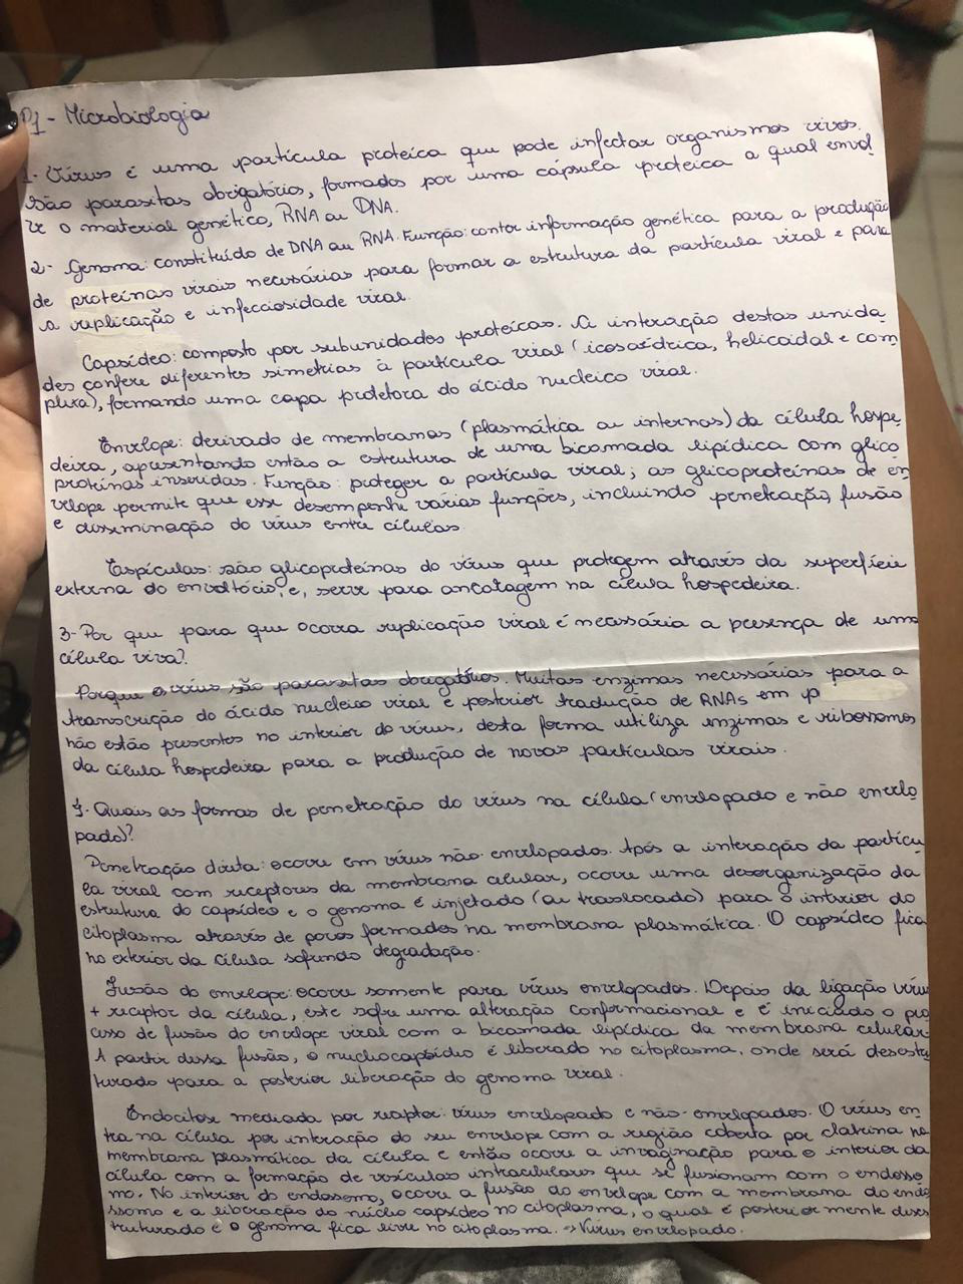 P1 - Microbiologia
1- Vírus é uma partícula proteica que pode infectar organismos vivos.
São parasitas obrigatórios, formados por uma cápsula proteica a qual envol
ve o material genético, RNA ou DNA.
2- Genoma: constituído de DNA ou RNA. Função: contor informação genética para a produção
de proteínas virais necessárias para formar a estrutura da partícula viral e para
a replicação e infecciosidade viral.
Capsídeo: composto por subunidades proteícas. A interação destas unida
des confere diferentes simetrias à partícula viral (icosaédrica, helicoidal e com
plexa), formando uma capa protetora do ácido nucleico viral.
Envelope: derivado de membranas (plasmática ou internas) da célula hospe
deira, apresentando então a estrutura de uma bicamada lipídica com glico
proteínas inseridas. Função: proteger a partícula viral; as glicoproteínas de en
velope permite que esse desempenhe várias funções, incluindo penetração, fusão
e disseminação do vírus entre células.
Espículas: são glicoproteínas do vírus que protegem através da superfície
externa do envoltócio, e, serve para ancoragem na célula hospedeira.
3- Por que para que ocorra replicação viral é necessária a presença de uma
célula viva?
Porque o vírus são parasitas obrigatórios. Muitas enzimas necessárias para a
transcrição do ácido nucleico viral e posterior tradução de RNAs em p
não estão presentes no interior do vírus, desta forma utiliza enzimas e ribossomos
da célula hospedeira para a produção de novas partículas virais.
4- Quais as formas de penetração do vírus na célula (envelopado e não envelo
pado)?
Penetração direta: ocorre em vírus não envelopados. Após a interação da partícu
la viral com receptores da membrana celular, ocorre uma desorganização da
estrutura do capsídeo e o genoma é injetado (ou traslocado) para o interior do
citoplasma através de poros formados na membrana plasmática. O capsídeo fica
no exterior da célula sofrendo degradação.
Fusão do envelope: ocorre somente para vírus envelopados. Depois da ligação vírus
+ receptor da célula, este sofre uma alteração conformacional e é iniciado o pro
cesso de fusão do envelope viral com a bicamada lipídica da membrana celular.
A partir dessa fusão, o nucleocapsídio é liberado no citoplasma, onde será desestru
turado para a posterior liberação do genoma viral.
Endocitose mediada por receptor: vírus envelopado e não-envelopados. O vírus en
tra na célula por interação do seu envelope com a região coberta por clatrina na
membrana plasmática da célula e então ocorre a invaginação para o interior da
célula com a formação de vesículas intracelulares que se fusionam com o endosso
mo. No interior do endossomo, ocorre a fusão do envelope com a membrana do endo
ssomo e a liberação do núcleo capsídeo no citoplasma, o qual é posterior mente deses
truturado e o genoma fica livre no citoplasma. -> Vírus envelopado.